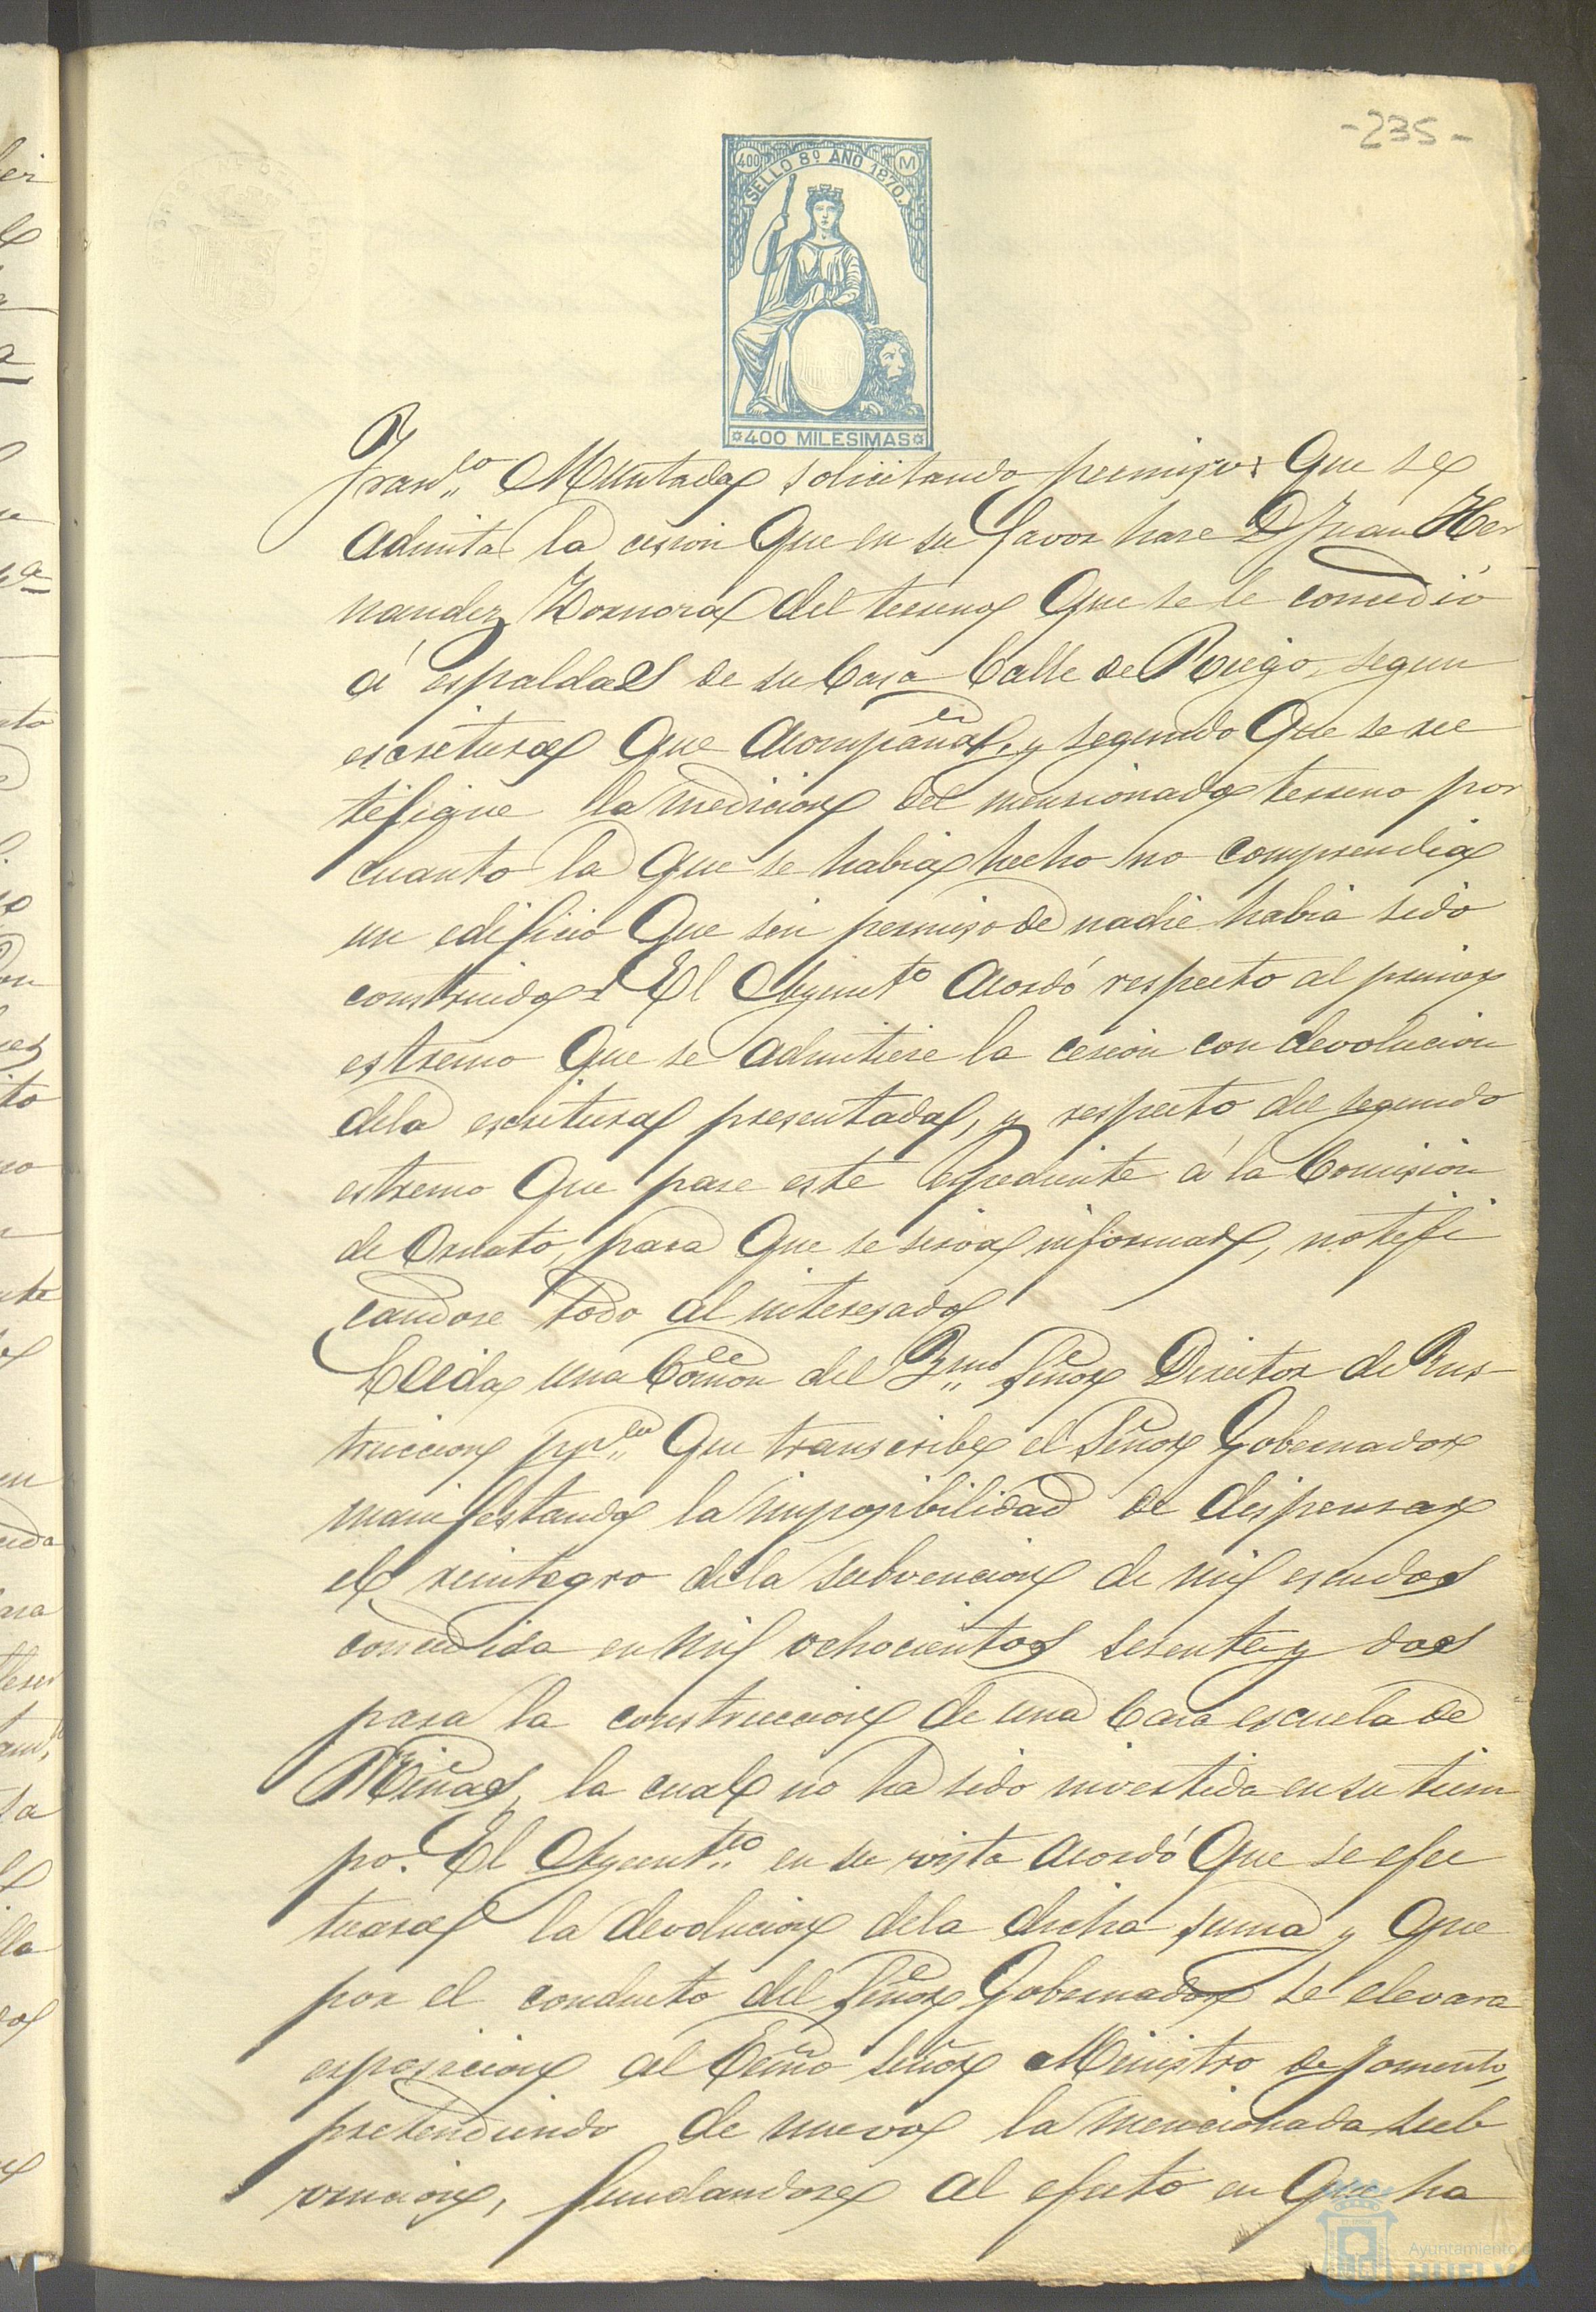 -235-
400 M
SELLO 8º AÑO 1870.
¤400 MILESIMAS¤
Franco Muntada solicitando permiso: Que se
admita la cesion que en su favor hace D Juan Her
nandez Zornora del terreno que se le concedió
á espaldas de su Casa Calle de Riego, segun
escritura que acompaña, y segundo que se rec
tifique la medicion del mensionado terreno por
cuanto la que se habia hecho no comprendia
un edificio que sin permiso de nadie habia sido
construido. El Ayuntto acordó respecto al primer
estremo que se admitiese la cesion con devolucion
dela escritura presentada, y respecto del segundo
estremo que pase este espediente á la Comision
de Ornato, para que se sirva informar, notifi
candose todo al interesado
Leida una Comon del Ymo Señor Director de Ins-
truccion ppca que transcribe el Señor Gobernador
manifestando la imposibilidad de dispensar
el reintegro dela subvencion de mil escudos
concedida en mil ochocientos sesenta y dos
para la construccion de una Casa escuela de
Niñas, la cual no ha sido invertida en su tiem
po. El Ayuntto en su vista acordó que se efec
tuara la devolucion dela dicha suma y que
por el conducto del Señor Gobernador se elevara
esposicion al Ecmo Señor Ministro de Fomento,
pretendiendo de nuevo la mencionada sub
vencion, fundandose al efecto en que ha
Ayuntamiento de
HUELVA